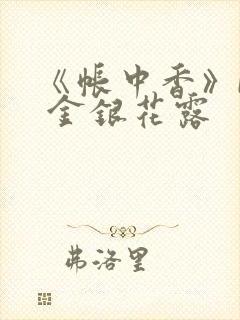 《帳中香》
金銀花露
弗洛里